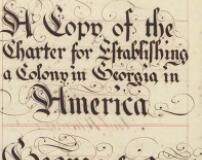 A Copy of the
Charter for Establishing
a Colony in Georgia in
America
George